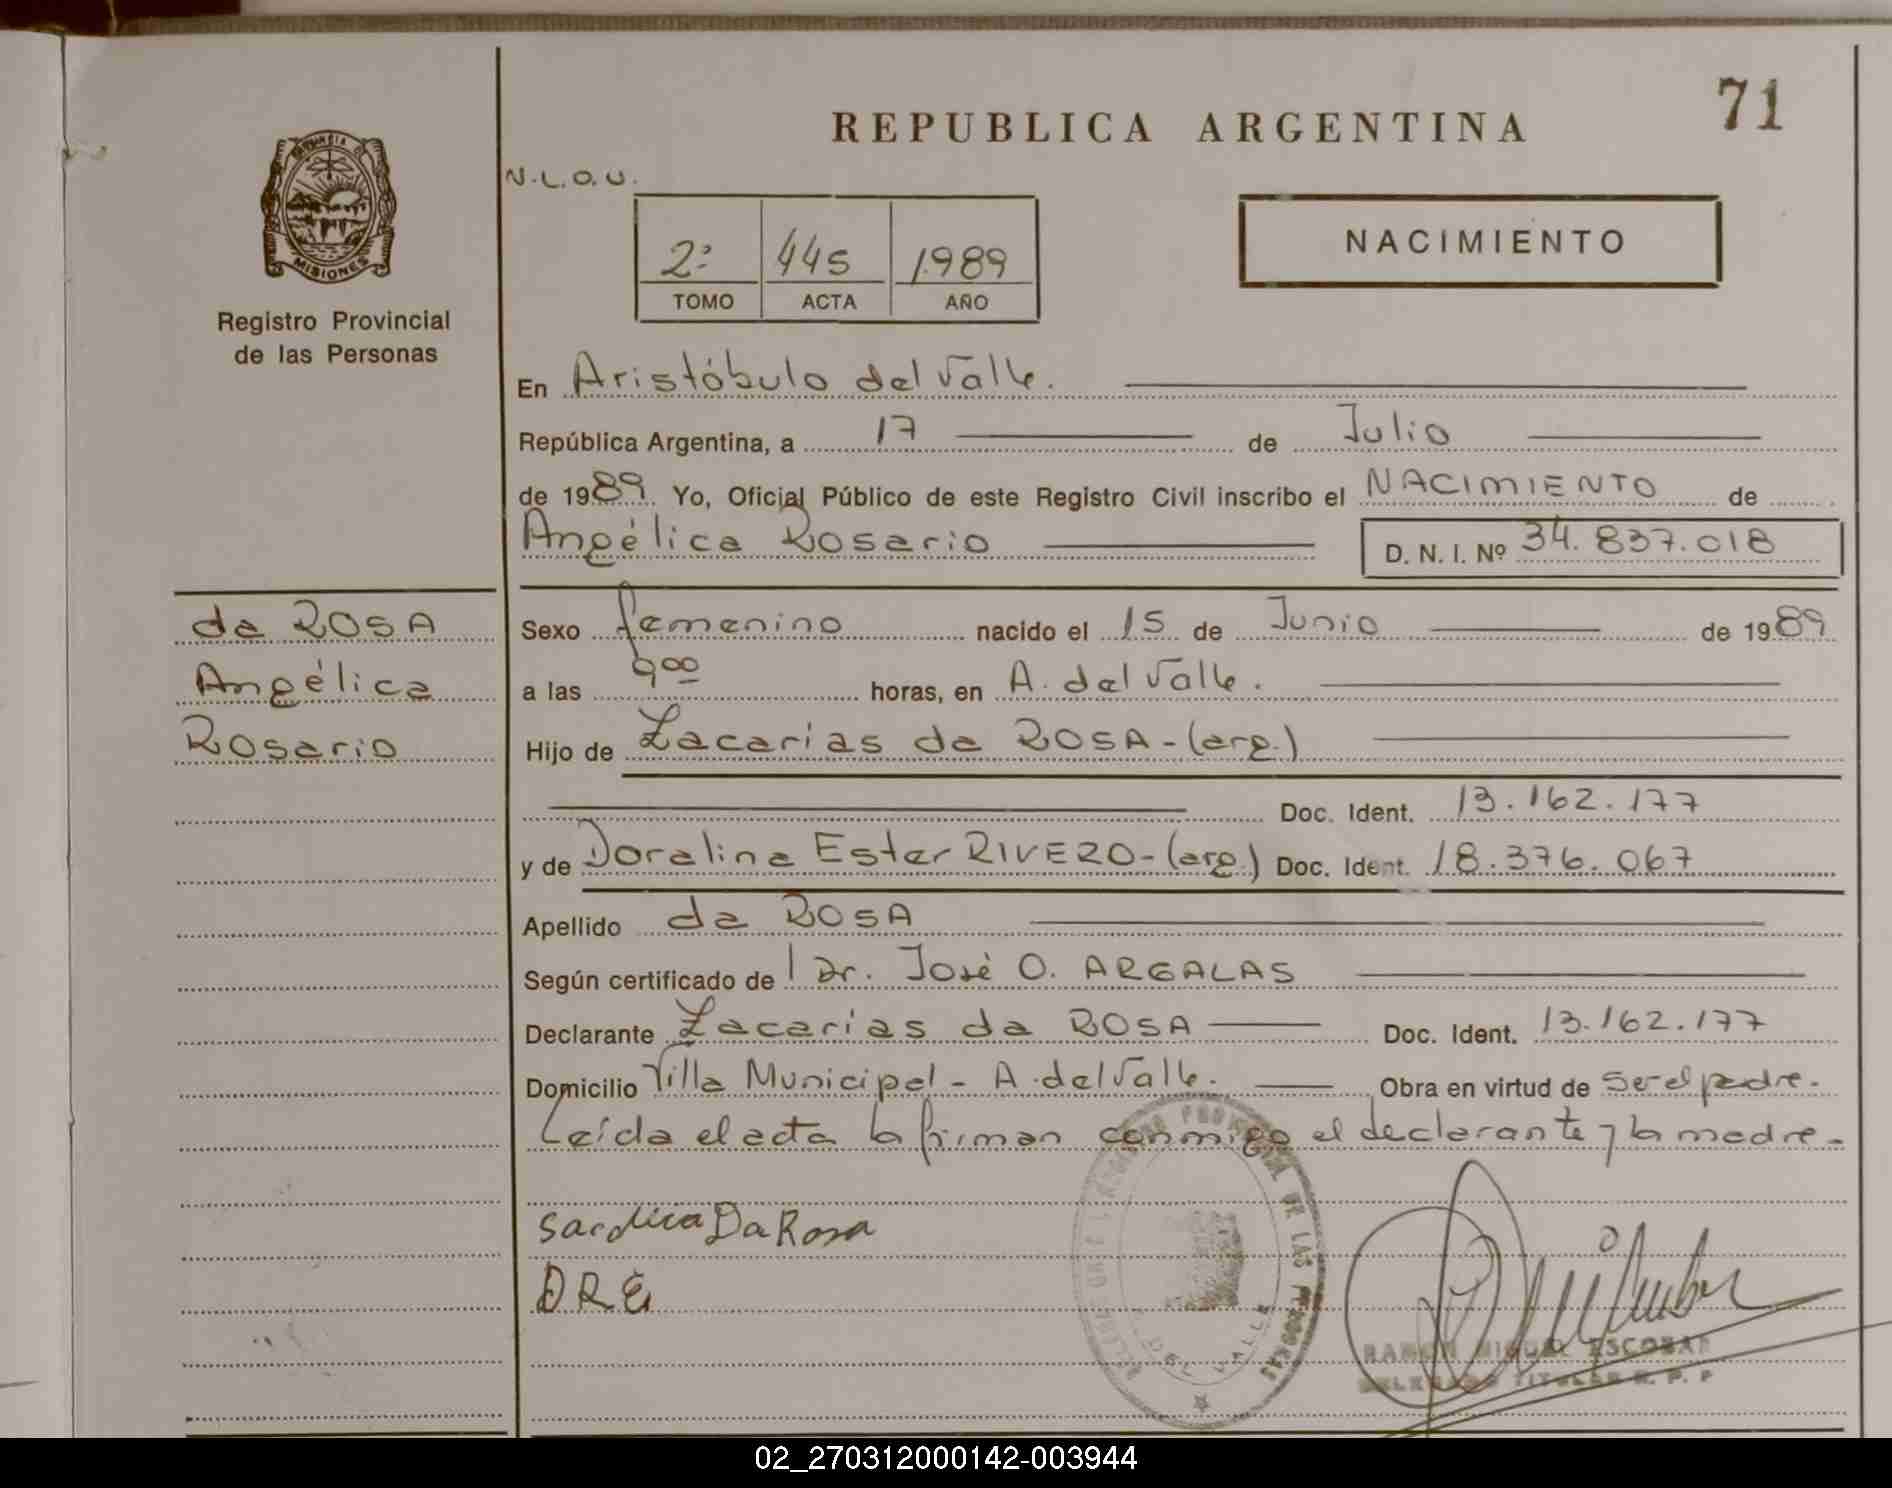 71
REPUBLICA ARGENTINA
PROVINCIA DE
MISIONES
Registro Provincial
de las Personas
N.L.O.U.
2º 445 1989
TOMO ACTA AÑO
NACIMIENTO
En Aristóbulo del Valle.
República Argentina, a 17 de Julio
de 1989. Yo, Oficial Público de este Registro Civil inscribo el NACIMIENTO de
Angélica Rosario D. N. I. Nº 34.837.018
da ROSA
Angélica
Rosario
Sexo femenino nacido el 15 de Junio de 1989
a las 9 00 horas, en A. del Valle.
Hijo de Zacarías da ROSA-(arg.)
Doc. Ident. 13.162.177
y de Doralina Ester RIVERO-(arg.) Doc. Ident. 18.376.067
Apellido da ROSA
Según certificado de Dr. José O. ARGALAS
Declarante Zacarías da ROSA Doc. Ident. 13.162.177
Domicilio Villa Municipal - A. del Valle. Obra en virtud de ser el padre.
Leída el acta la firman conmigo el declarante y la madre.
Da Rosa
DRE
DE LAS PERSONAS
DEL VALLE
RAMON MIGUEL ESCOBAR
DELEGADO TITULAR R. P. P
02_270312000142-003944